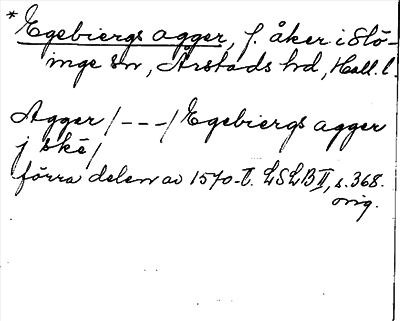 * Egebiergs agger, f. åker i Slö-
inge sn, Årstads hd, Hall. l.
Agger / - - - / Egebiergs agger
j skè /
förra delen av 1570-t. LSLB II, s. 368.
orig.